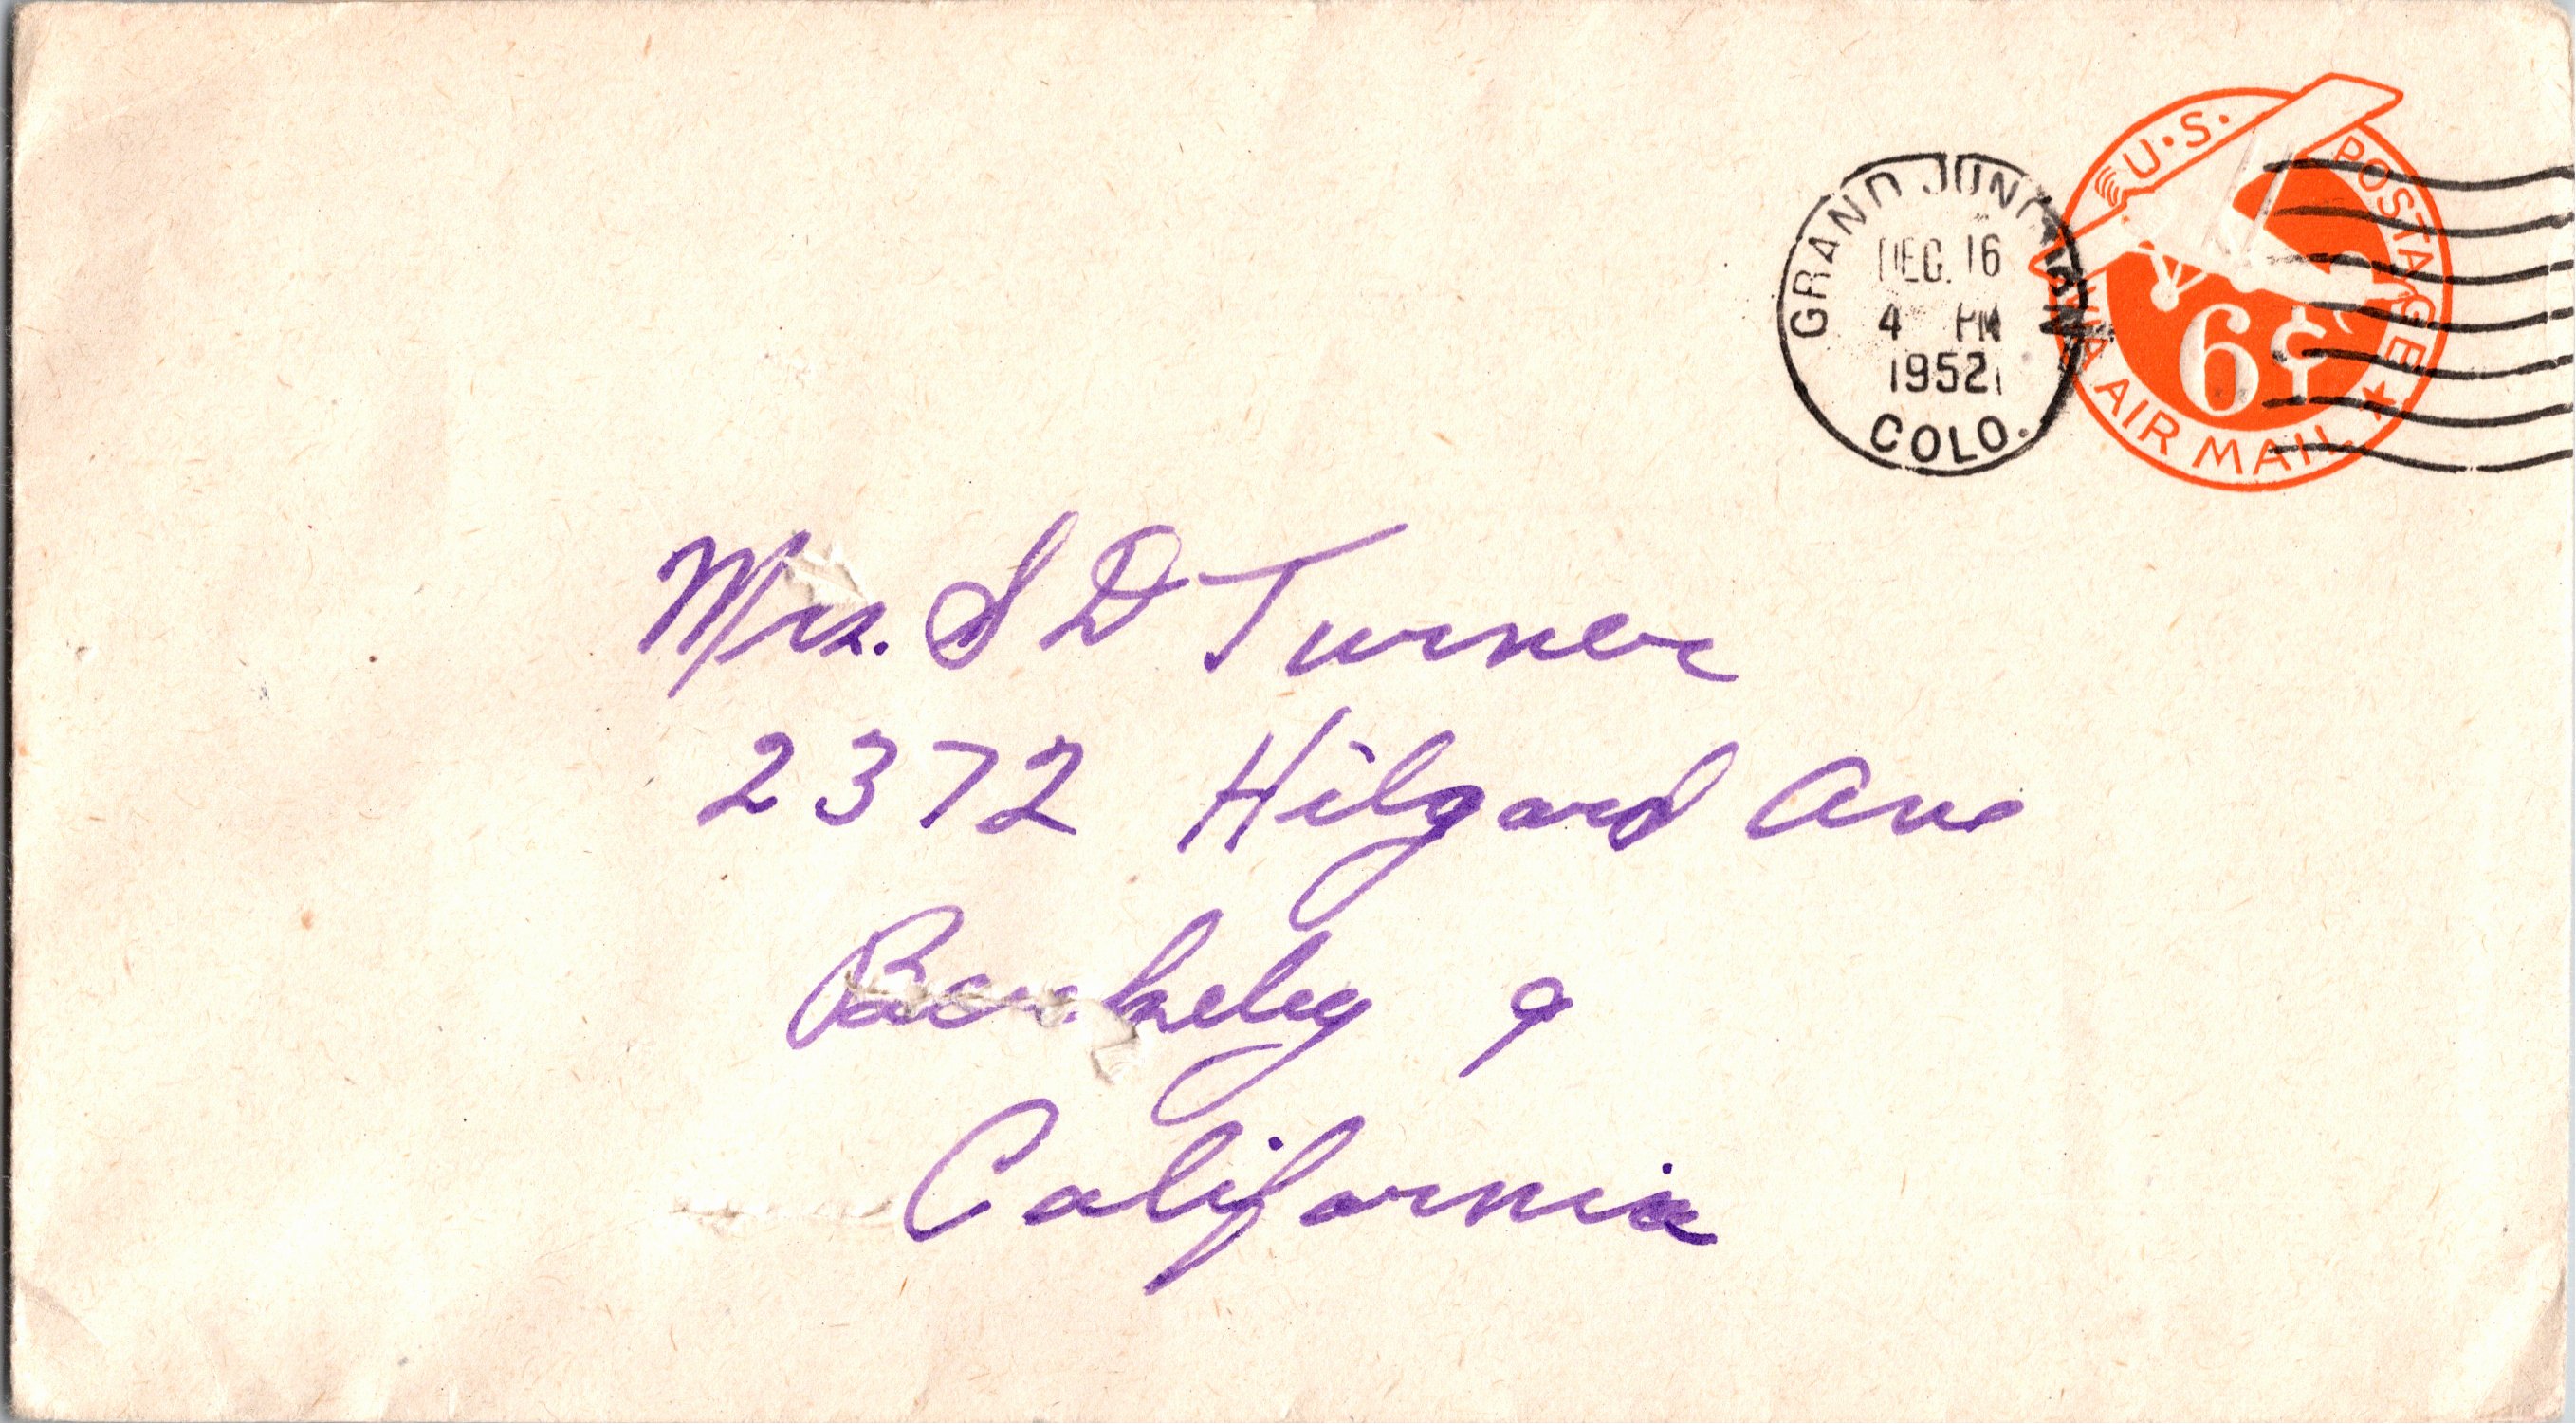 GRAND JUNCTION
DEC. 16
4 PM
1952
COLO.
U.S. POSTAGE
6¢
VIA AIR MAIL
Mrs. S D Turner
2372 Hilgard Ave
Berkeley 9
California